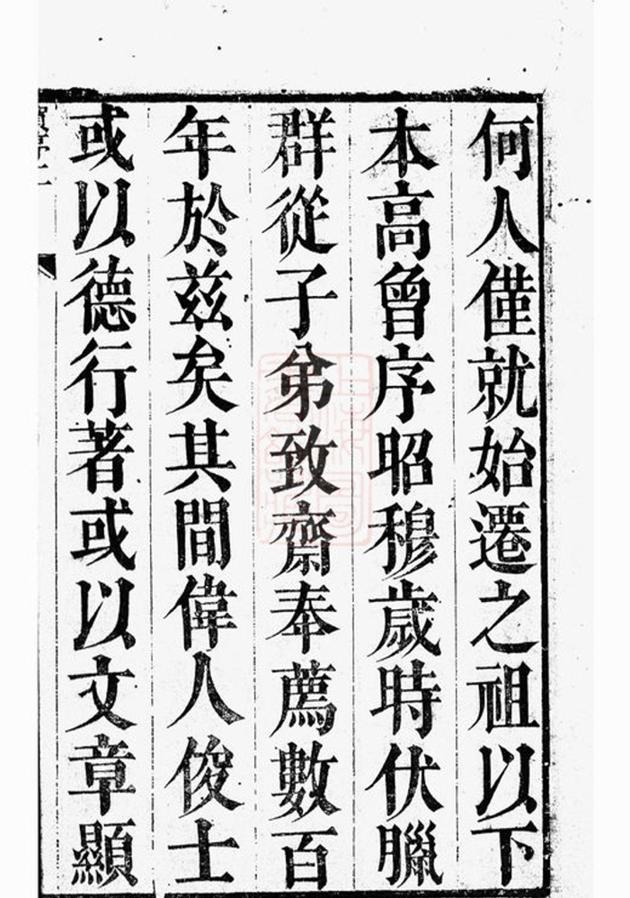 何人僅就始遷之祖以下
本高曾序昭穆歲時伏臘
群從子弟致齋奉薦數百
年於茲矣其間偉人俊士
或以德行著或以文章顯